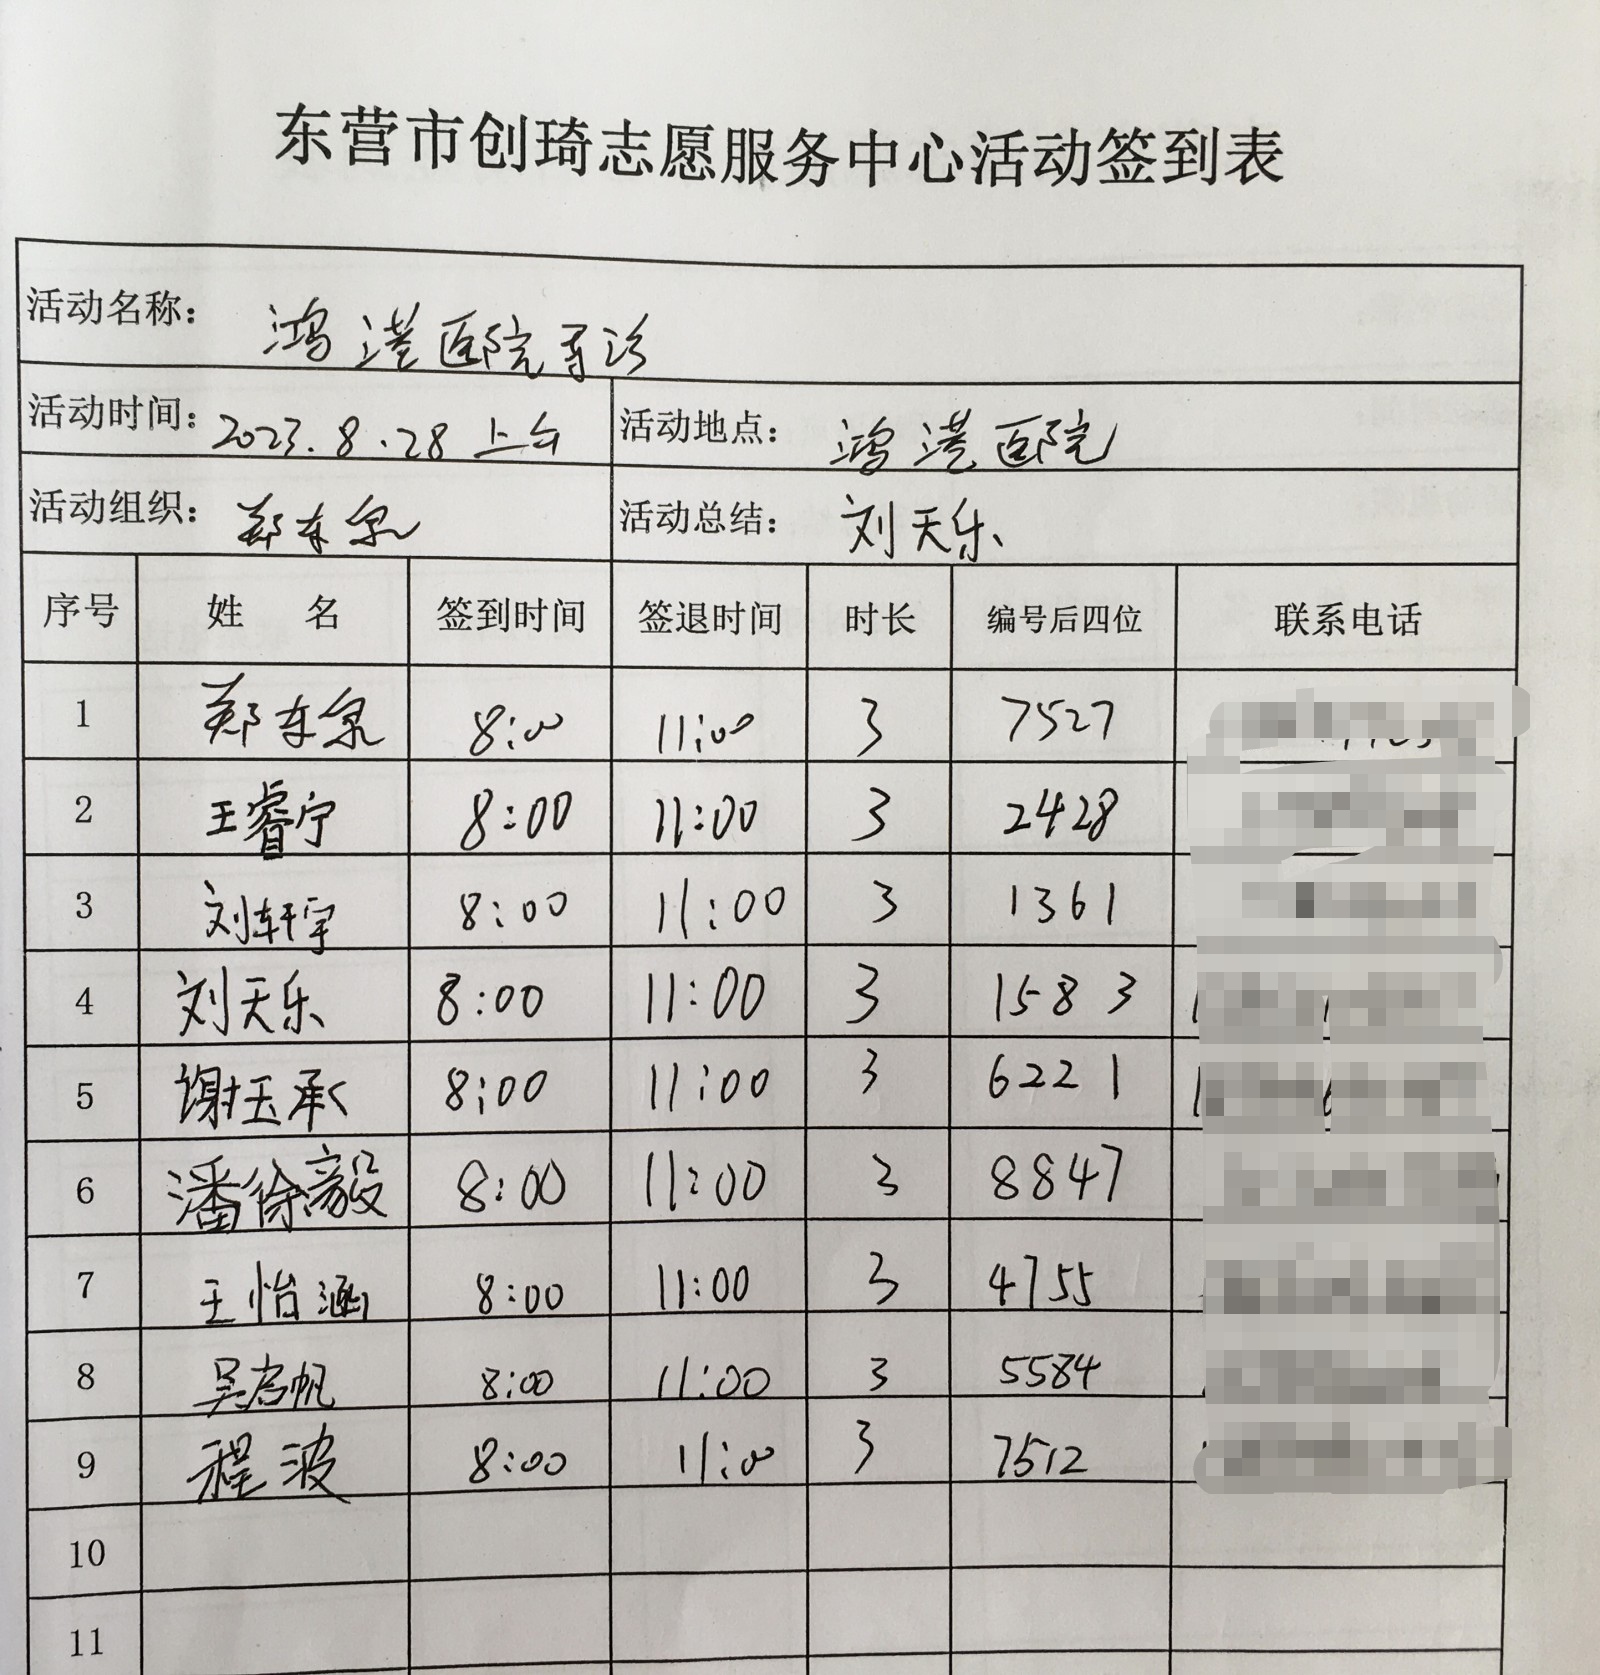 东营市创琦志愿服务中心活动签到表
活动名称： 鸿港医院导诊
活动时间： 2023.8.28上午 活动地点： 鸿港医院
活动组织： 郑东泉 活动总结： 刘天乐
序号 姓 名 签到时间 签退时间 时长 编号后四位 联系电话
1 郑东泉 8:00 11:00 3 7527
2 王睿宁 8:00 11:00 3 2428
3 刘轩宇 8:00 11:00 3 1361
4 刘天乐 8:00 11:00 3 1583
5 谢玉承 8:00 11:00 3 6221
6 潘徐毅 8:00 11:00 3 8847
7 王怡涵 8:00 11:00 3 4755
8 吴启帆 8:00 11:00 3 5584
9 程波 8:00 11:00 3 7512
10
11